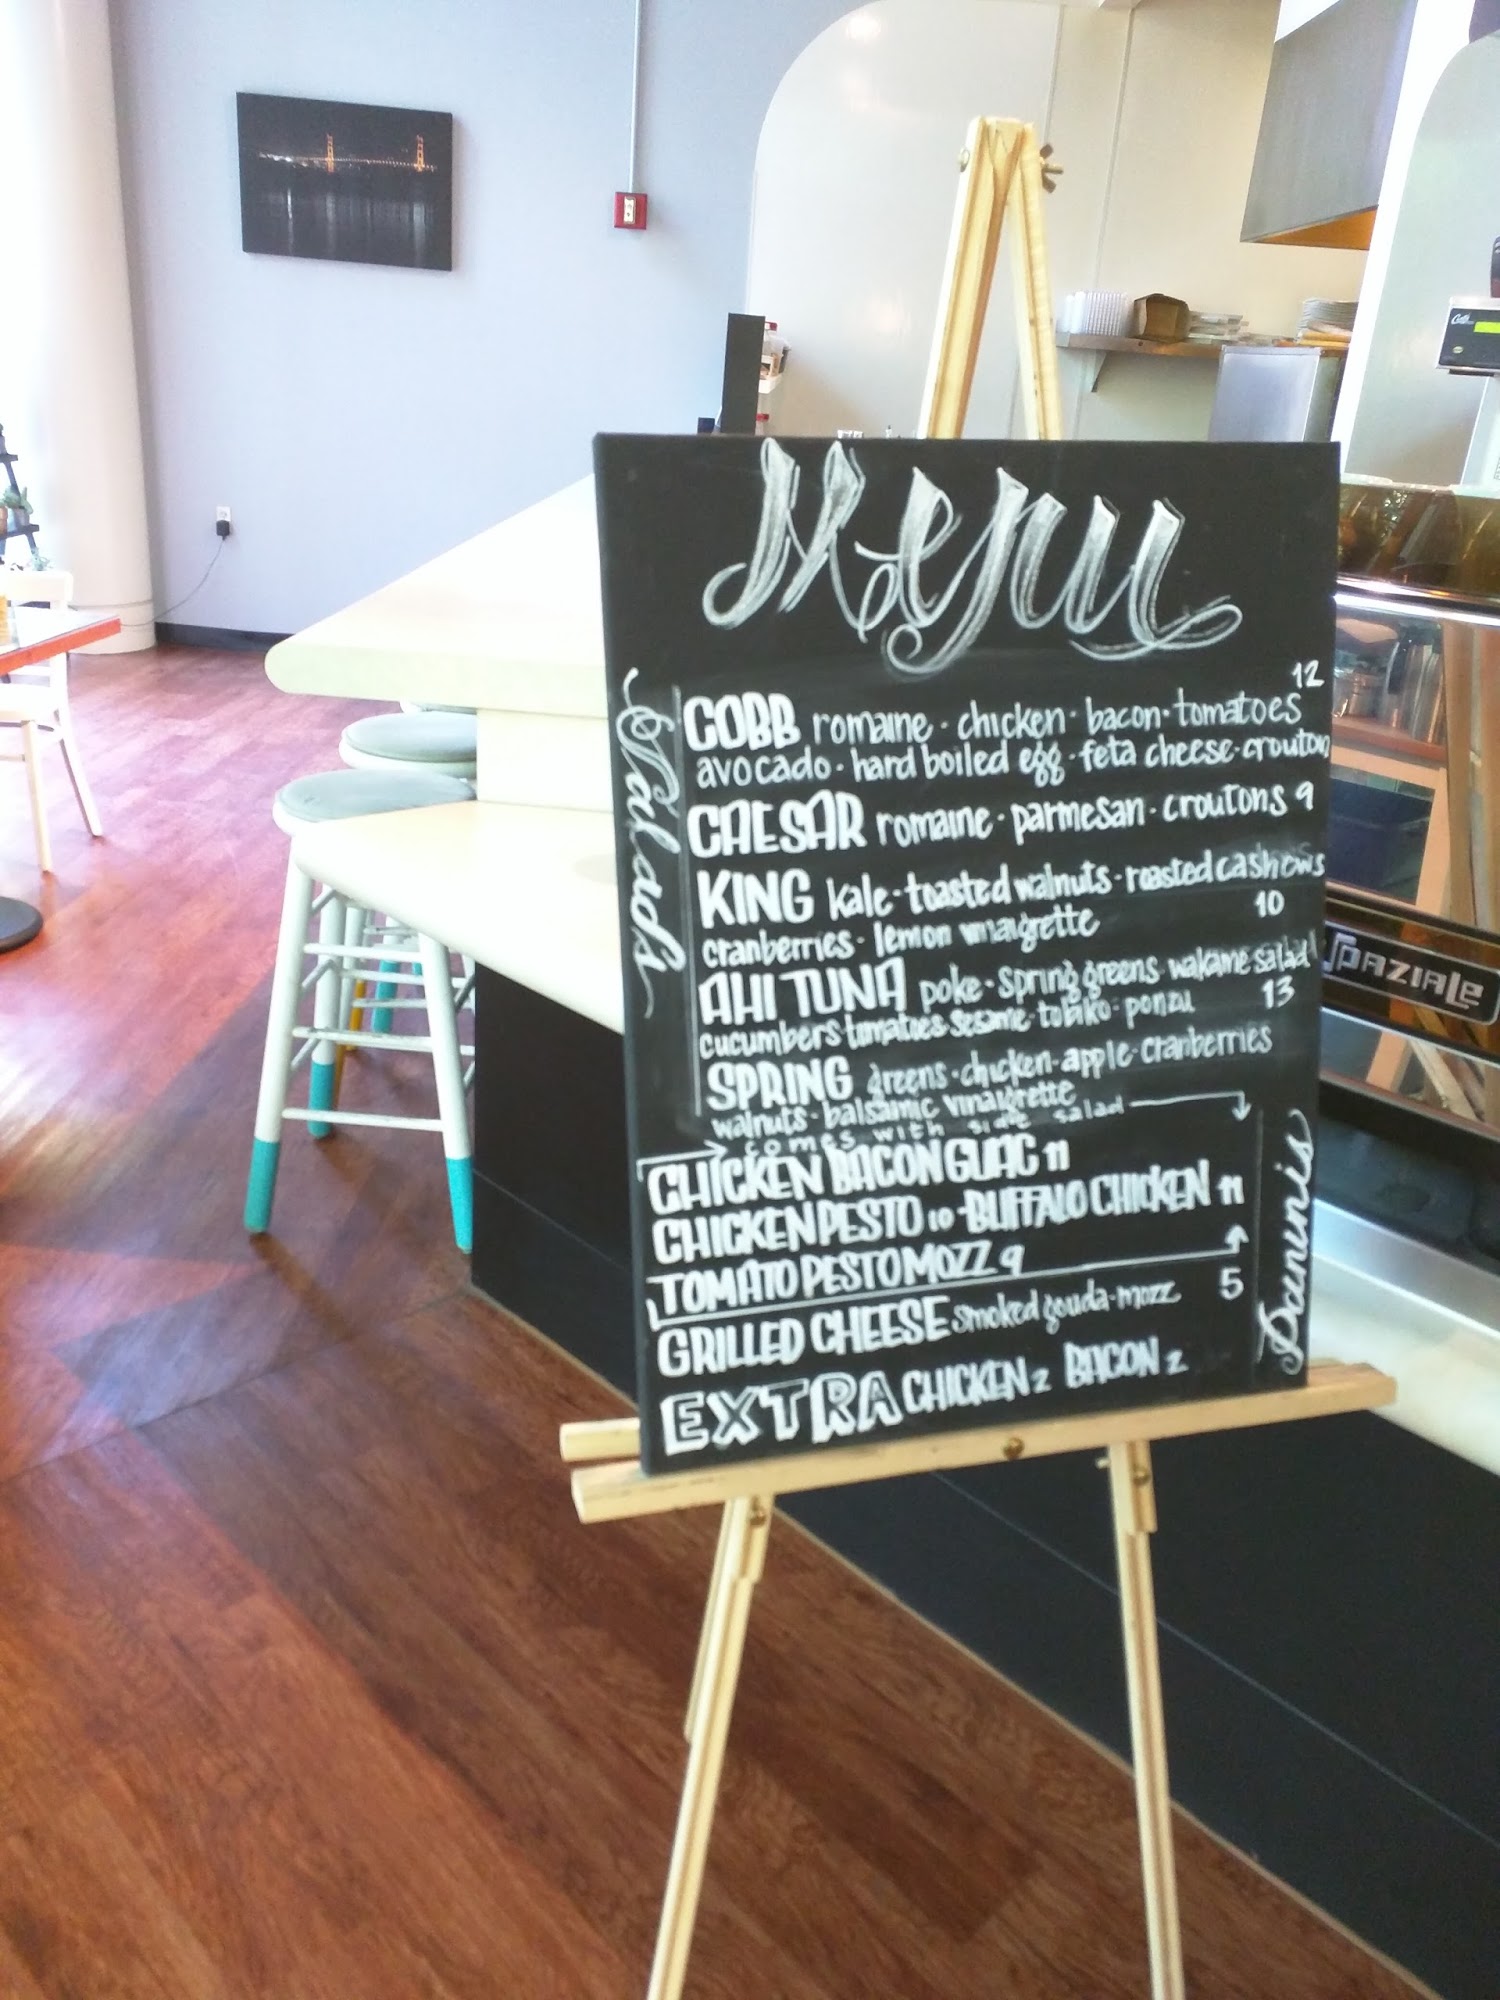 Menu
Salads
12
COBB romaine · chicken · bacon · tomatoes
avocado · hard boiled egg · feta cheese · crouton
CAESAR romaine · parmesan · croutons 9
KING kale · toasted walnuts · roasted cashews
cranberries · lemon vinaigrette 10
AHI TUNA poke · spring greens · wakame salad
cucumbers · tomatoes · sesame · tobiko · ponzu 13
SPRING greens · chicken · apple · cranberries
walnuts · balsamic vinaigrette
comes with side salad
Paninis
CHICKEN BACON GUAC 11
CHICKEN PESTO 10 - BUFFALO CHICKEN 11
TOMATO PESTO MOZZ 9
GRILLED CHEESE smoked gouda - mozz 5
EXTRA CHICKEN 2 BACON 2
SPAZIALE